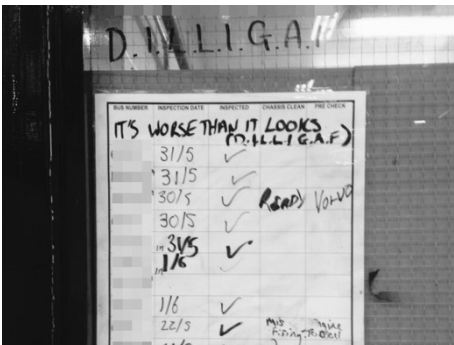 D.I.L.L.I.G.A.F
BUS NUMBER INSPECTION DATE INSPECTED CHASSIS CLEAN PRE CHECK
IT'S WORSE THAN IT LOOKS
(D.I.L.L.I.G.A.F)
31/5 ✓
31/5 ✓
30/5 ✓ READY VOLVO
30/5 ✓
31/5 ✓
1/6
1/6 ✓
22/5 ✓